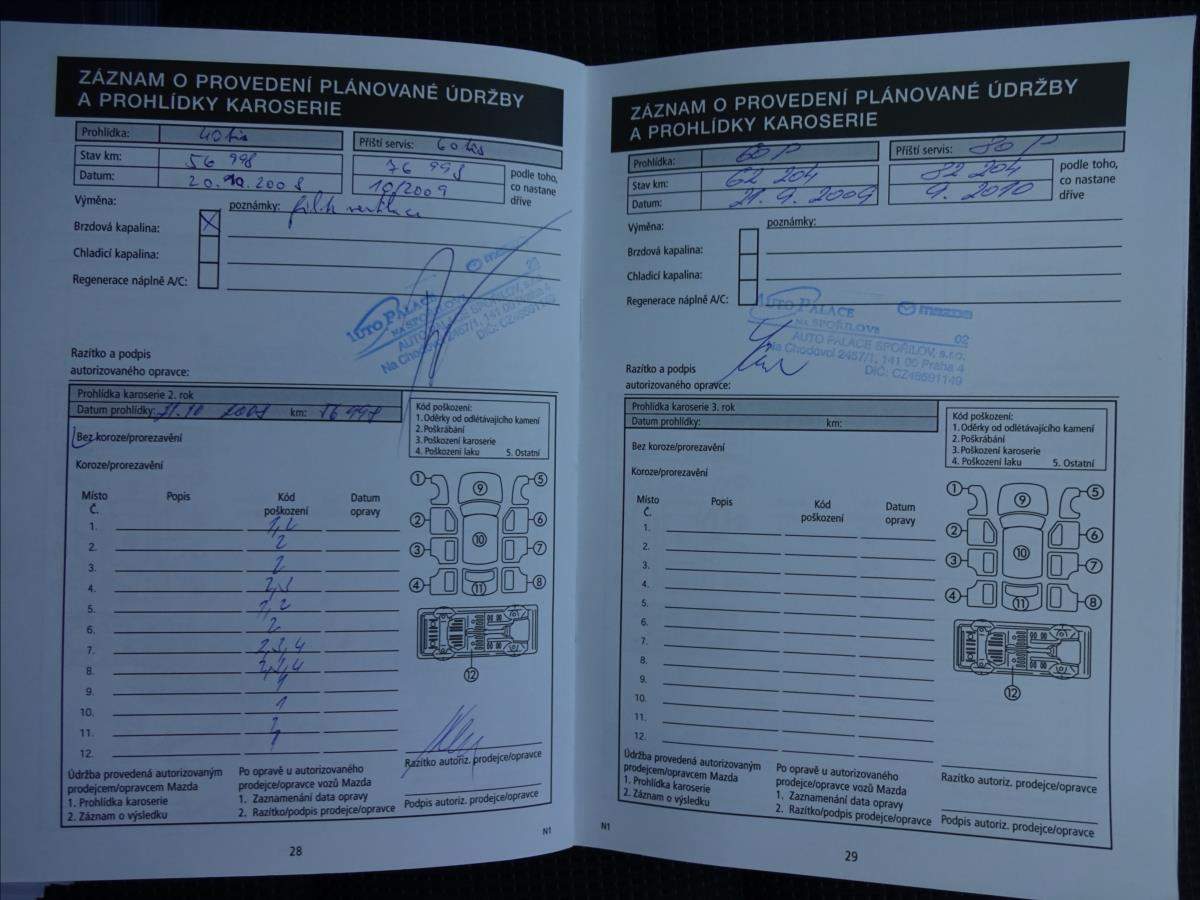 ZÁZNAM O PROVEDENÍ PLÁNOVANÉ ÚDRŽBY
A PROHLÍDKY KAROSERIE
Prohlídka: 40 tis
Příští servis: 60 tis
Stav km: 56 998
76 998
Datum: 20.10.2008
10/2009
podle toho,
co nastane
dříve
Výměna:
poznámky: filtr ventilace
Brzdová kapalina: X
Chladicí kapalina:
Regenerace náplně A/C:
AUTO PALACE
mazda
NA SPOŘILOV
AUTO PALACE SPOŘILOV, s.r.o.
Na Chodovci 2457/1, 141 00 Praha 4
DIČ: CZ48591149
Razítko a podpis
autorizovaného opravce:
Prohlídka karoserie 2. rok
Datum prohlídky: 21.10 2008 km: 56 998
Bez koroze/prorezavění
Koroze/prorezavění
Kód poškození:
1. Oděrky od odlétávajícího kamení
2. Poškrábání
3. Poškození karoserie
4. Poškození laku 5. Ostatní
Místo Č. Popis Kód poškození Datum opravy
1. 1,2
2. 2
3. 2
4.
5. 1,2
6. 2
7. 2,3,4
8.
9. 1
10. 1
11.
12.
1 2 3 4 5 6 7 8 9 10 11 12
Údržba provedená autorizovaným
prodejcem/opravcem Mazda
1. Prohlídka karoserie
2. Záznam o výsledku
Po opravě u autorizovaného
prodejce/opravce vozů Mazda
1. Zaznamenání data opravy
2. Razítko/podpis prodejce/opravce
Razítko autoriz. prodejce/opravce
Podpis autoriz. prodejce/opravce
N1
28
ZÁZNAM O PROVEDENÍ PLÁNOVANÉ ÚDRŽBY
A PROHLÍDKY KAROSERIE
Prohlídka: 60 P
Příští servis: 80 P
Stav km: 62 204
82 204
Datum: 21. 9. 2009
9. 2010
podle toho,
co nastane
dříve
Výměna:
poznámky:
Brzdová kapalina:
Chladicí kapalina:
Regenerace náplně A/C:
AUTO PALACE
mazda
NA SPOŘILOVE
02
AUTO PALACE SPOŘILOV, s.r.o.
Na Chodovci 2457/1, 141 00 Praha 4
DIČ: CZ48591149
Razítko a podpis
autorizovaného opravce:
Prohlídka karoserie 3. rok
Datum prohlídky: km:
Bez koroze/prorezavění
Koroze/prorezavění
Kód poškození:
1. Oděrky od odlétávajícího kamení
2. Poškrábání
3. Poškození karoserie
4. Poškození laku 5. Ostatní
Místo Č. Popis Kód poškození Datum opravy
1.
2.
3.
4.
5.
6.
7.
8.
9.
10.
11.
12.
1 2 3 4 5 6 7 8 9 10 11 12
Údržba provedená autorizovaným
prodejcem/opravcem Mazda
1. Prohlídka karoserie
2. Záznam o výsledku
Po opravě u autorizovaného
prodejce/opravce vozů Mazda
1. Zaznamenání data opravy
2. Razítko/podpis prodejce/opravce
Razítko autoriz. prodejce/opravce
Podpis autoriz. prodejce/opravce
N1
29